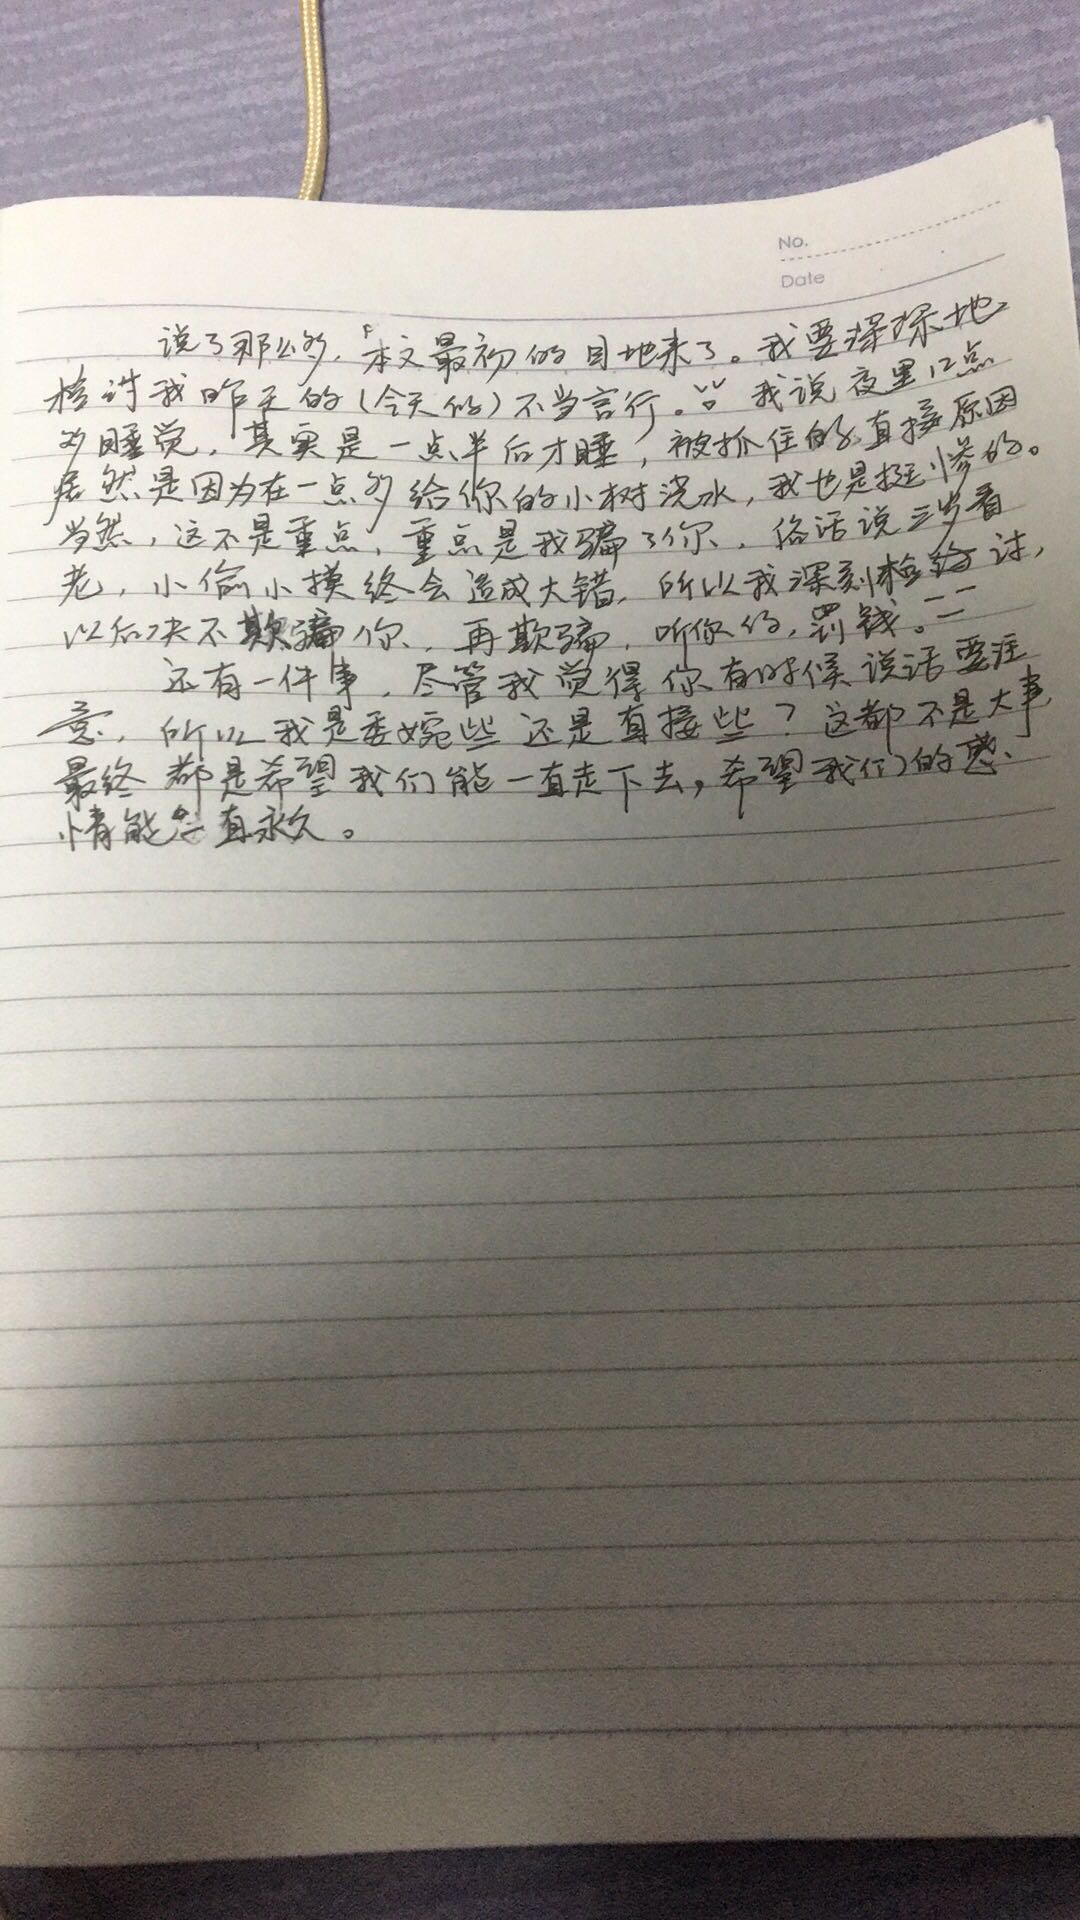 No.
Date
说了那么多,本文最初的目地来了。我要深深地
检讨我昨天的(今天的)不当言行。我说夜里12点
多睡觉,其实是一点半后才睡,被抓住的直接原因
居然是因为在一点多给你的小树浇水,我也是挺惨的。
当然,这不是重点,重点是我骗了你,俗话说三岁看
老,小偷小摸终会造成大错,所以我深刻检讨,
以后决不欺骗你,再欺骗,听你的,罚钱。
还有一件事,尽管我觉得你有时候说话要注
意,所以我是委婉些还是直接些?这都不是大事
最终都是希望我们能一直走下去,希望我们的感
情能直永久。